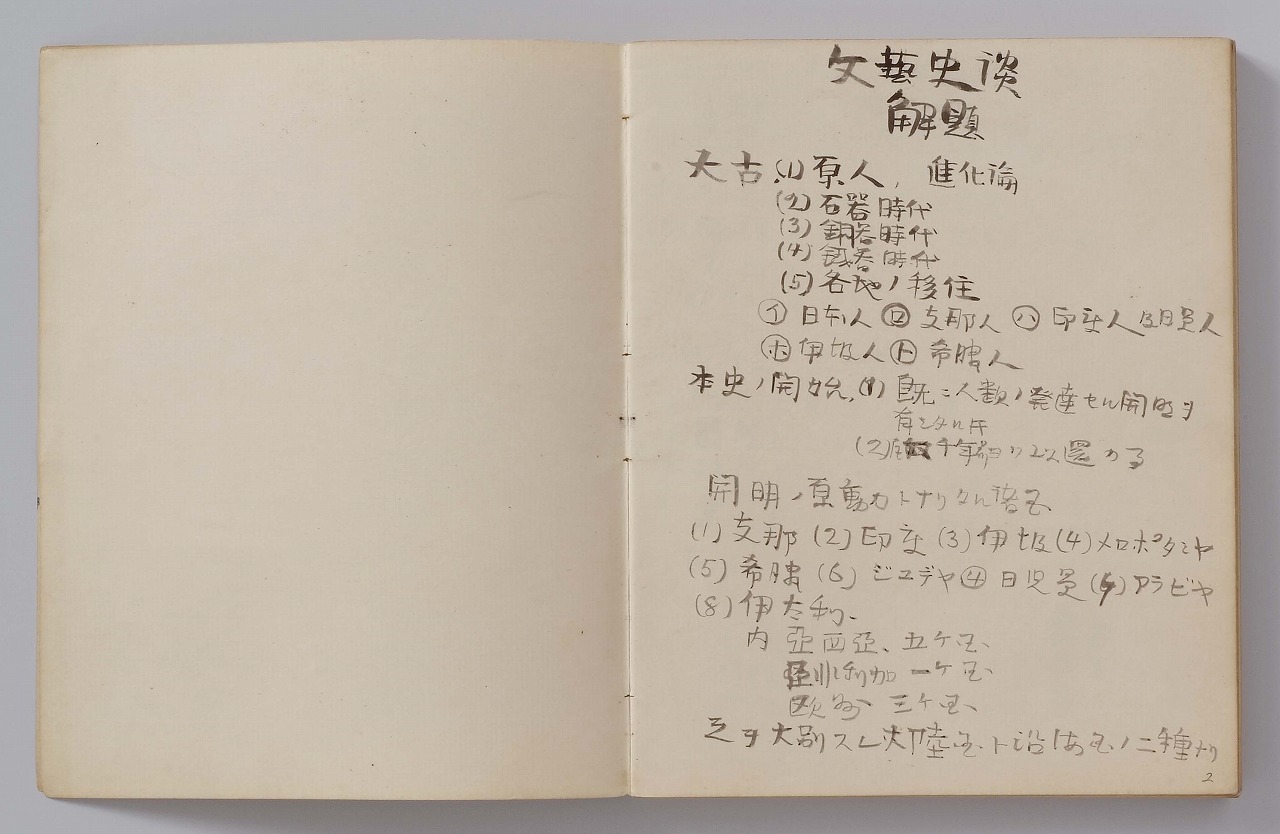 文藝史談
解題
大古、(1) 原人、進化論
(2) 石器時代
(3) 銅器時代
(4) 鉄器時代
(5) 各地ノ移住
㋑ 日本人 ㋺ 支那人 ㋩ 印度人 及日耳曼人
㋭ 伊埃人 ㋣ 希臘人
本史ノ開始、(1) 既ニ人類ノ発達セル開明ヲ
有シタル所
(2) 千年前
開明ノ原動力トナリタル諸国
(1) 支那 (2) 印度 (3) 伊埃 (4) メロポタミヤ
(5) 希臘 (6) ジユデヤ 日児曼 アラビヤ
(8) 伊太利、
内 亞西亞、五ケ国、
亞非利加 一ケ国、
欧州 三ケ国、
之ヲ大別スレ 大陸国ト沿海国ノ二種ナリ
2